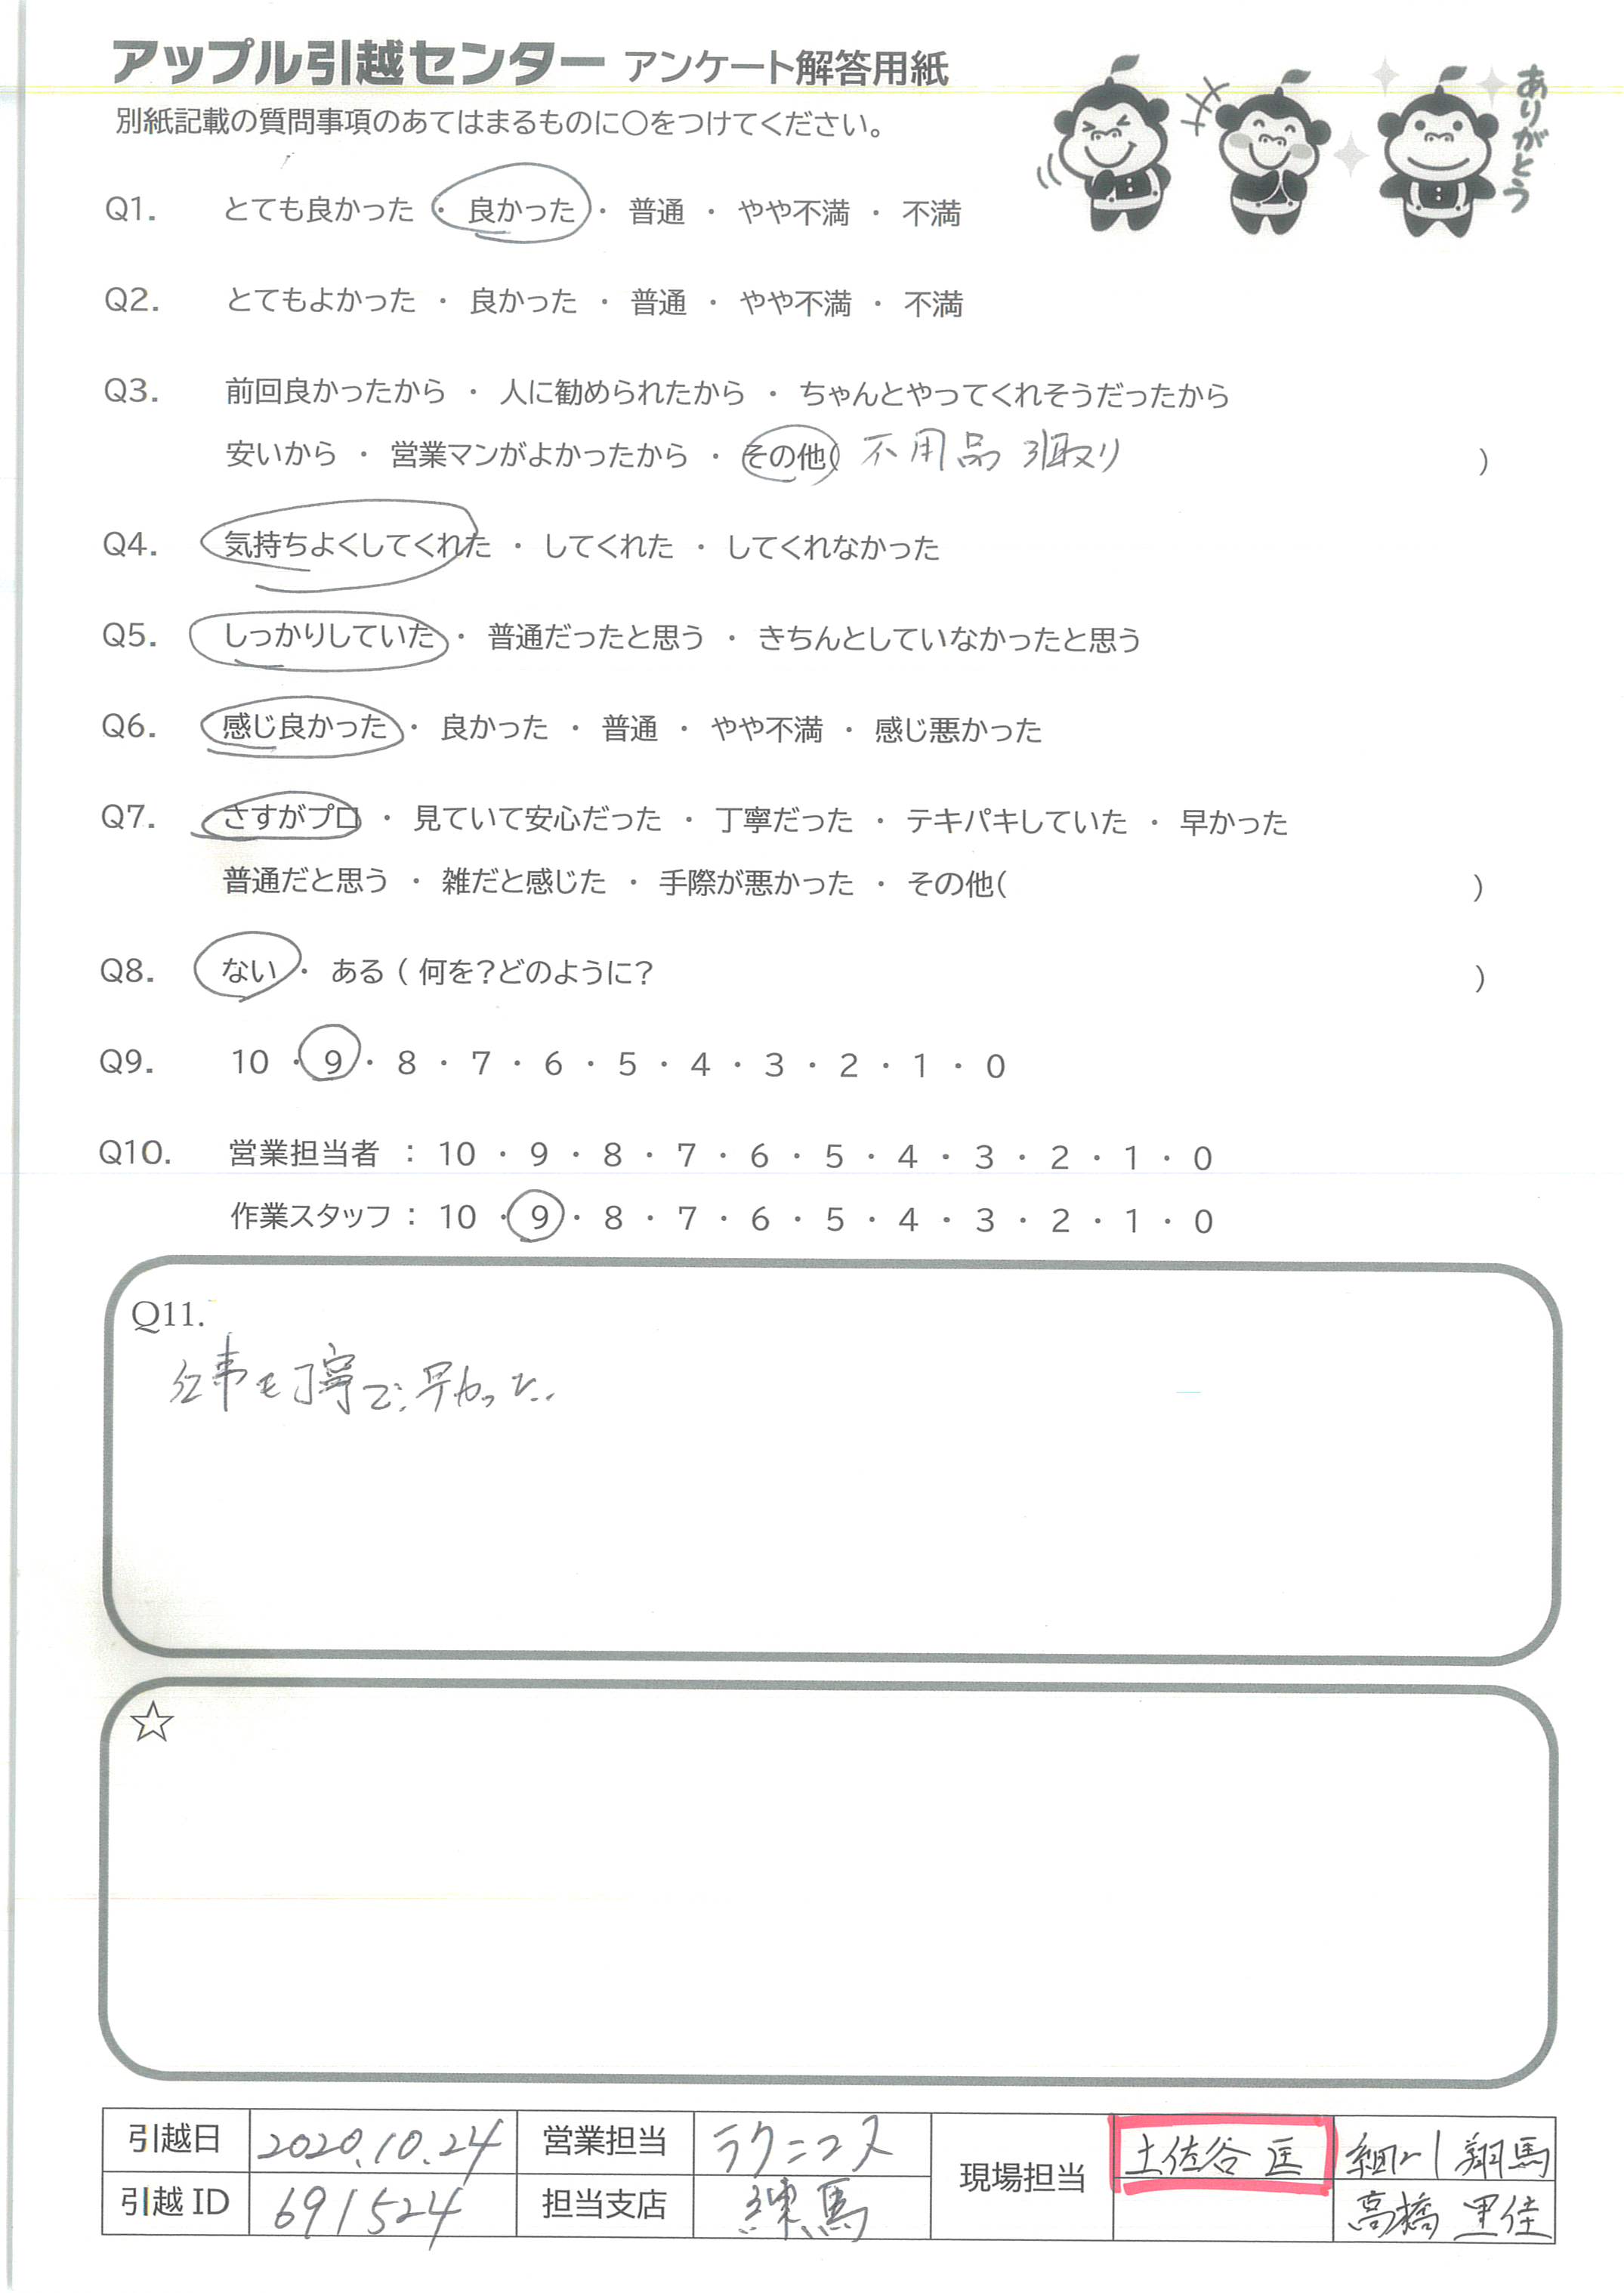 アップル引越センター アンケート解答用紙
別紙記載の質問事項のあてはまるものに○をつけてください。
ありがとう
Q1. とても良かった ・ 良かった ・ 普通 ・ やや不満 ・ 不満
Q2. とてもよかった ・ 良かった ・ 普通 ・ やや不満 ・ 不満
Q3. 前回良かったから ・ 人に勧められたから ・ ちゃんとやってくれそうだったから
安いから ・ 営業マンがよかったから ・ その他( 不用品 引取り )
Q4. 気持ちよくしてくれた ・ してくれた ・ してくれなかった
Q5. しっかりしていた ・ 普通だったと思う ・ きちんとしていなかったと思う
Q6. 感じ良かった ・ 良かった ・ 普通 ・ やや不満 ・ 感じ悪かった
Q7. さすがプロ ・ 見ていて安心だった ・ 丁寧だった ・ テキパキしていた ・ 早かった
普通だと思う ・ 雑だと感じた ・ 手際が悪かった ・ その他( )
Q8. ない ・ ある ( 何を?どのように? )
Q9. 10 ・ 9 ・ 8 ・ 7 ・ 6 ・ 5 ・ 4 ・ 3 ・ 2 ・ 1 ・ 0
Q10. 営業担当者 : 10 ・ 9 ・ 8 ・ 7 ・ 6 ・ 5 ・ 4 ・ 3 ・ 2 ・ 1 ・ 0
作業スタッフ : 10 ・ 9 ・ 8 ・ 7 ・ 6 ・ 5 ・ 4 ・ 3 ・ 2 ・ 1 ・ 0
Q11.
仕事も丁寧で、早かった。
☆
引越日 2020.10.24 営業担当 ラクニコス 現場担当 土佐谷 匡 翔馬
引越 ID 691524 担当支店 練馬 高橋 里佳